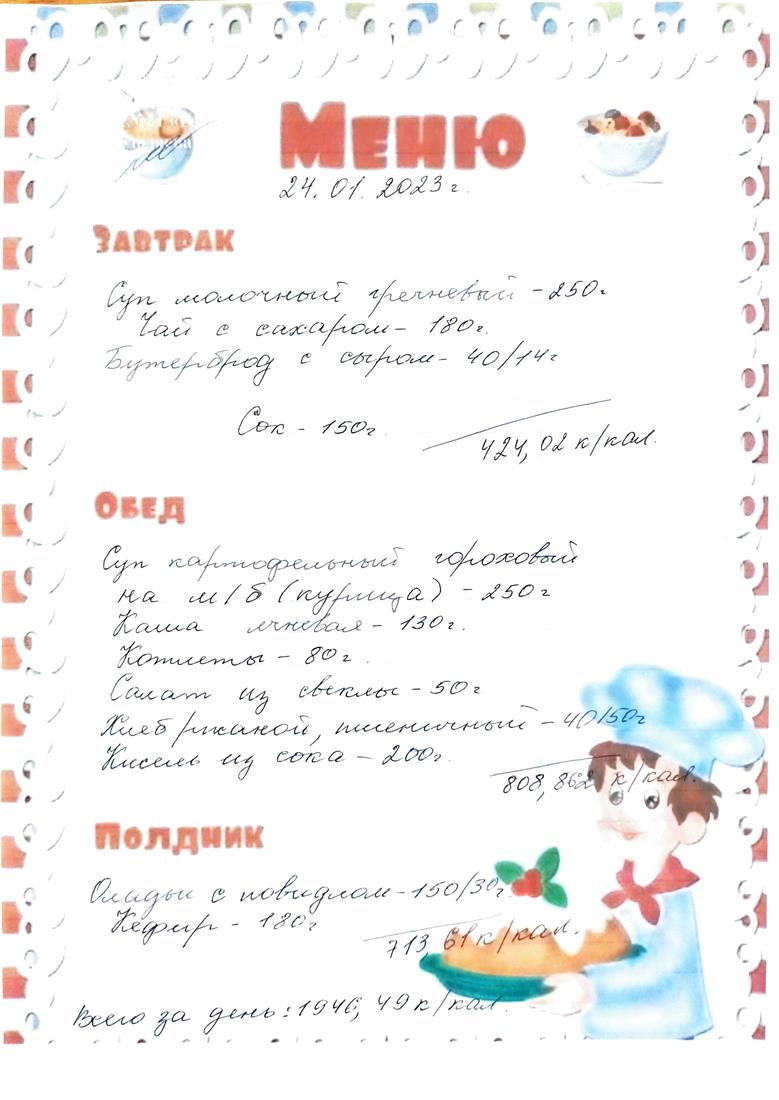 Меню
24.01.2023г.
Завтрак
Суп молочный гречневый - 250г
Чай с сахаром - 180г.
Бутерброд с сыром - 40/14г
Сок - 150г.
424,02 к/кал.
Обед
Суп картофельный гороховый
на м/б (курица) - 250г
Каша ячневая - 130г.
Котлеты - 80г.
Салат из свеклы - 50г
Хлеб ржаной, пшеничный - 40/50г
Кисель из сока - 200г.
808,862 к/кал.
Полдник
Оладьи с повидлом - 150/30г.
Кефир - 180г
713,61 к/кал.
Всего за день: 1946,49 к/кал.